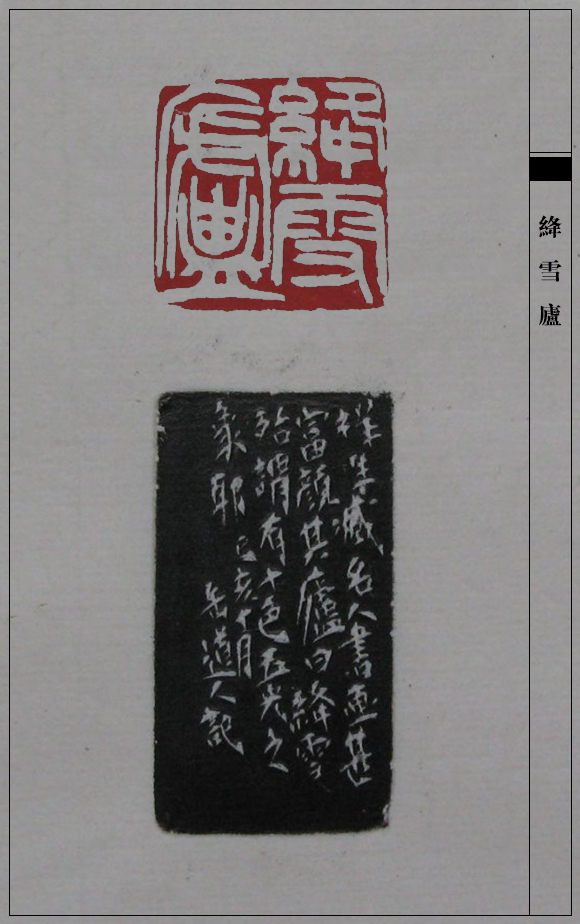 絳雪廬
絳雪
廬
祥生藏名人書畫甚
富顏其廬曰絳雪
殆謂有十色五光之
象耶己亥十月
缶道人記